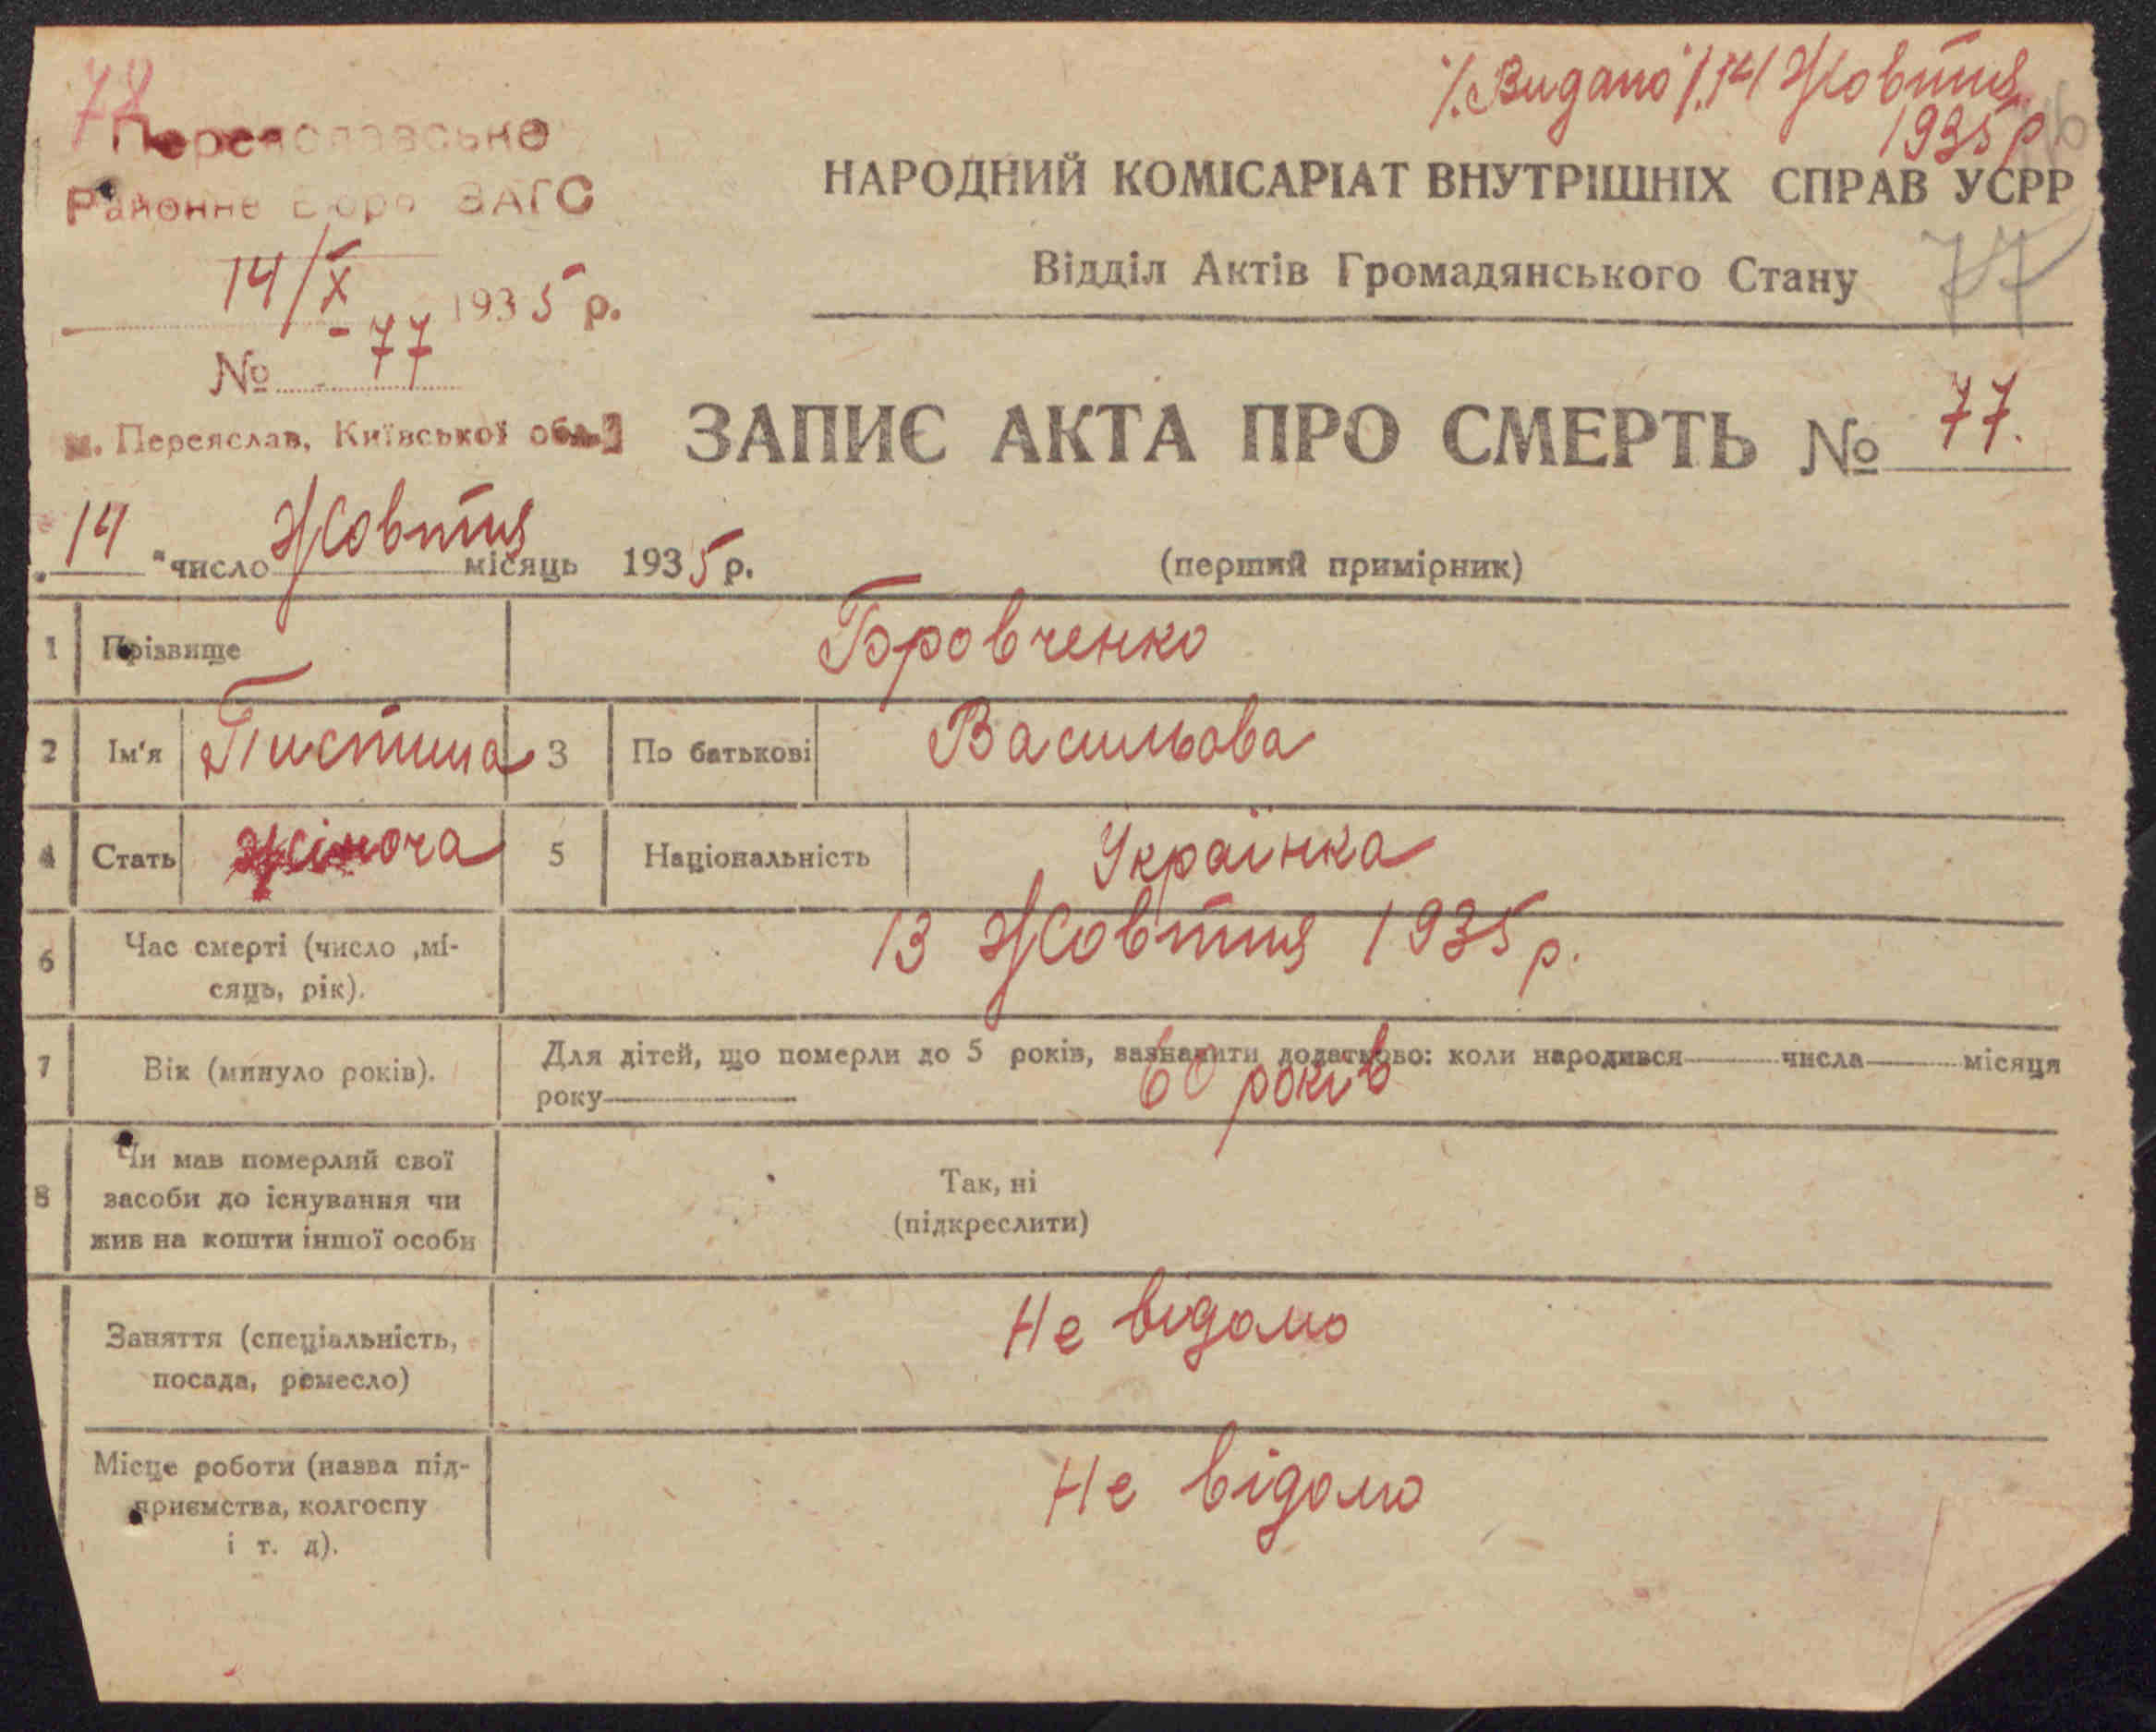 78
Переяславське
Районне Бюро ЗАГС
14/X 1935 р.
№ 77
м. Переяслав, Київської обл.
/. Видано /. 14/ Жовтня
1935 р
НАРОДНИЙ КОМІСАРІАТ ВНУТРІШНІХ СПРАВ УСРР
Відділ Актів Громадянського Стану
77
ЗАПИС АКТА ПРО СМЕРТЬ № 77.
"14" число Жовтня місяць 1935 р.
(перший примірник)
1 Прізвище Бровченко
2 Ім'я Тистина 3 По батькові Васильова
4 Стать жіноча 5 Національність Українка
6 Час смерті (число ,мі-
сяць, рік).
13 Жовтня 1935 р.
7 Вік (минуло років).
Для дітей, що померли до 5 років, зазначити додатково: коли народився числа місяця
року
60 років
8 Чи мав померлий свої
засоби до існування чи
жив на кошти іншої особи
Так, ні
(підкреслити)
Заняття (спеціальність,
посада, ремесло)
Не відомо
Місце роботи (назва під-
приємства, колгоспу
і т. д).
Не відомо